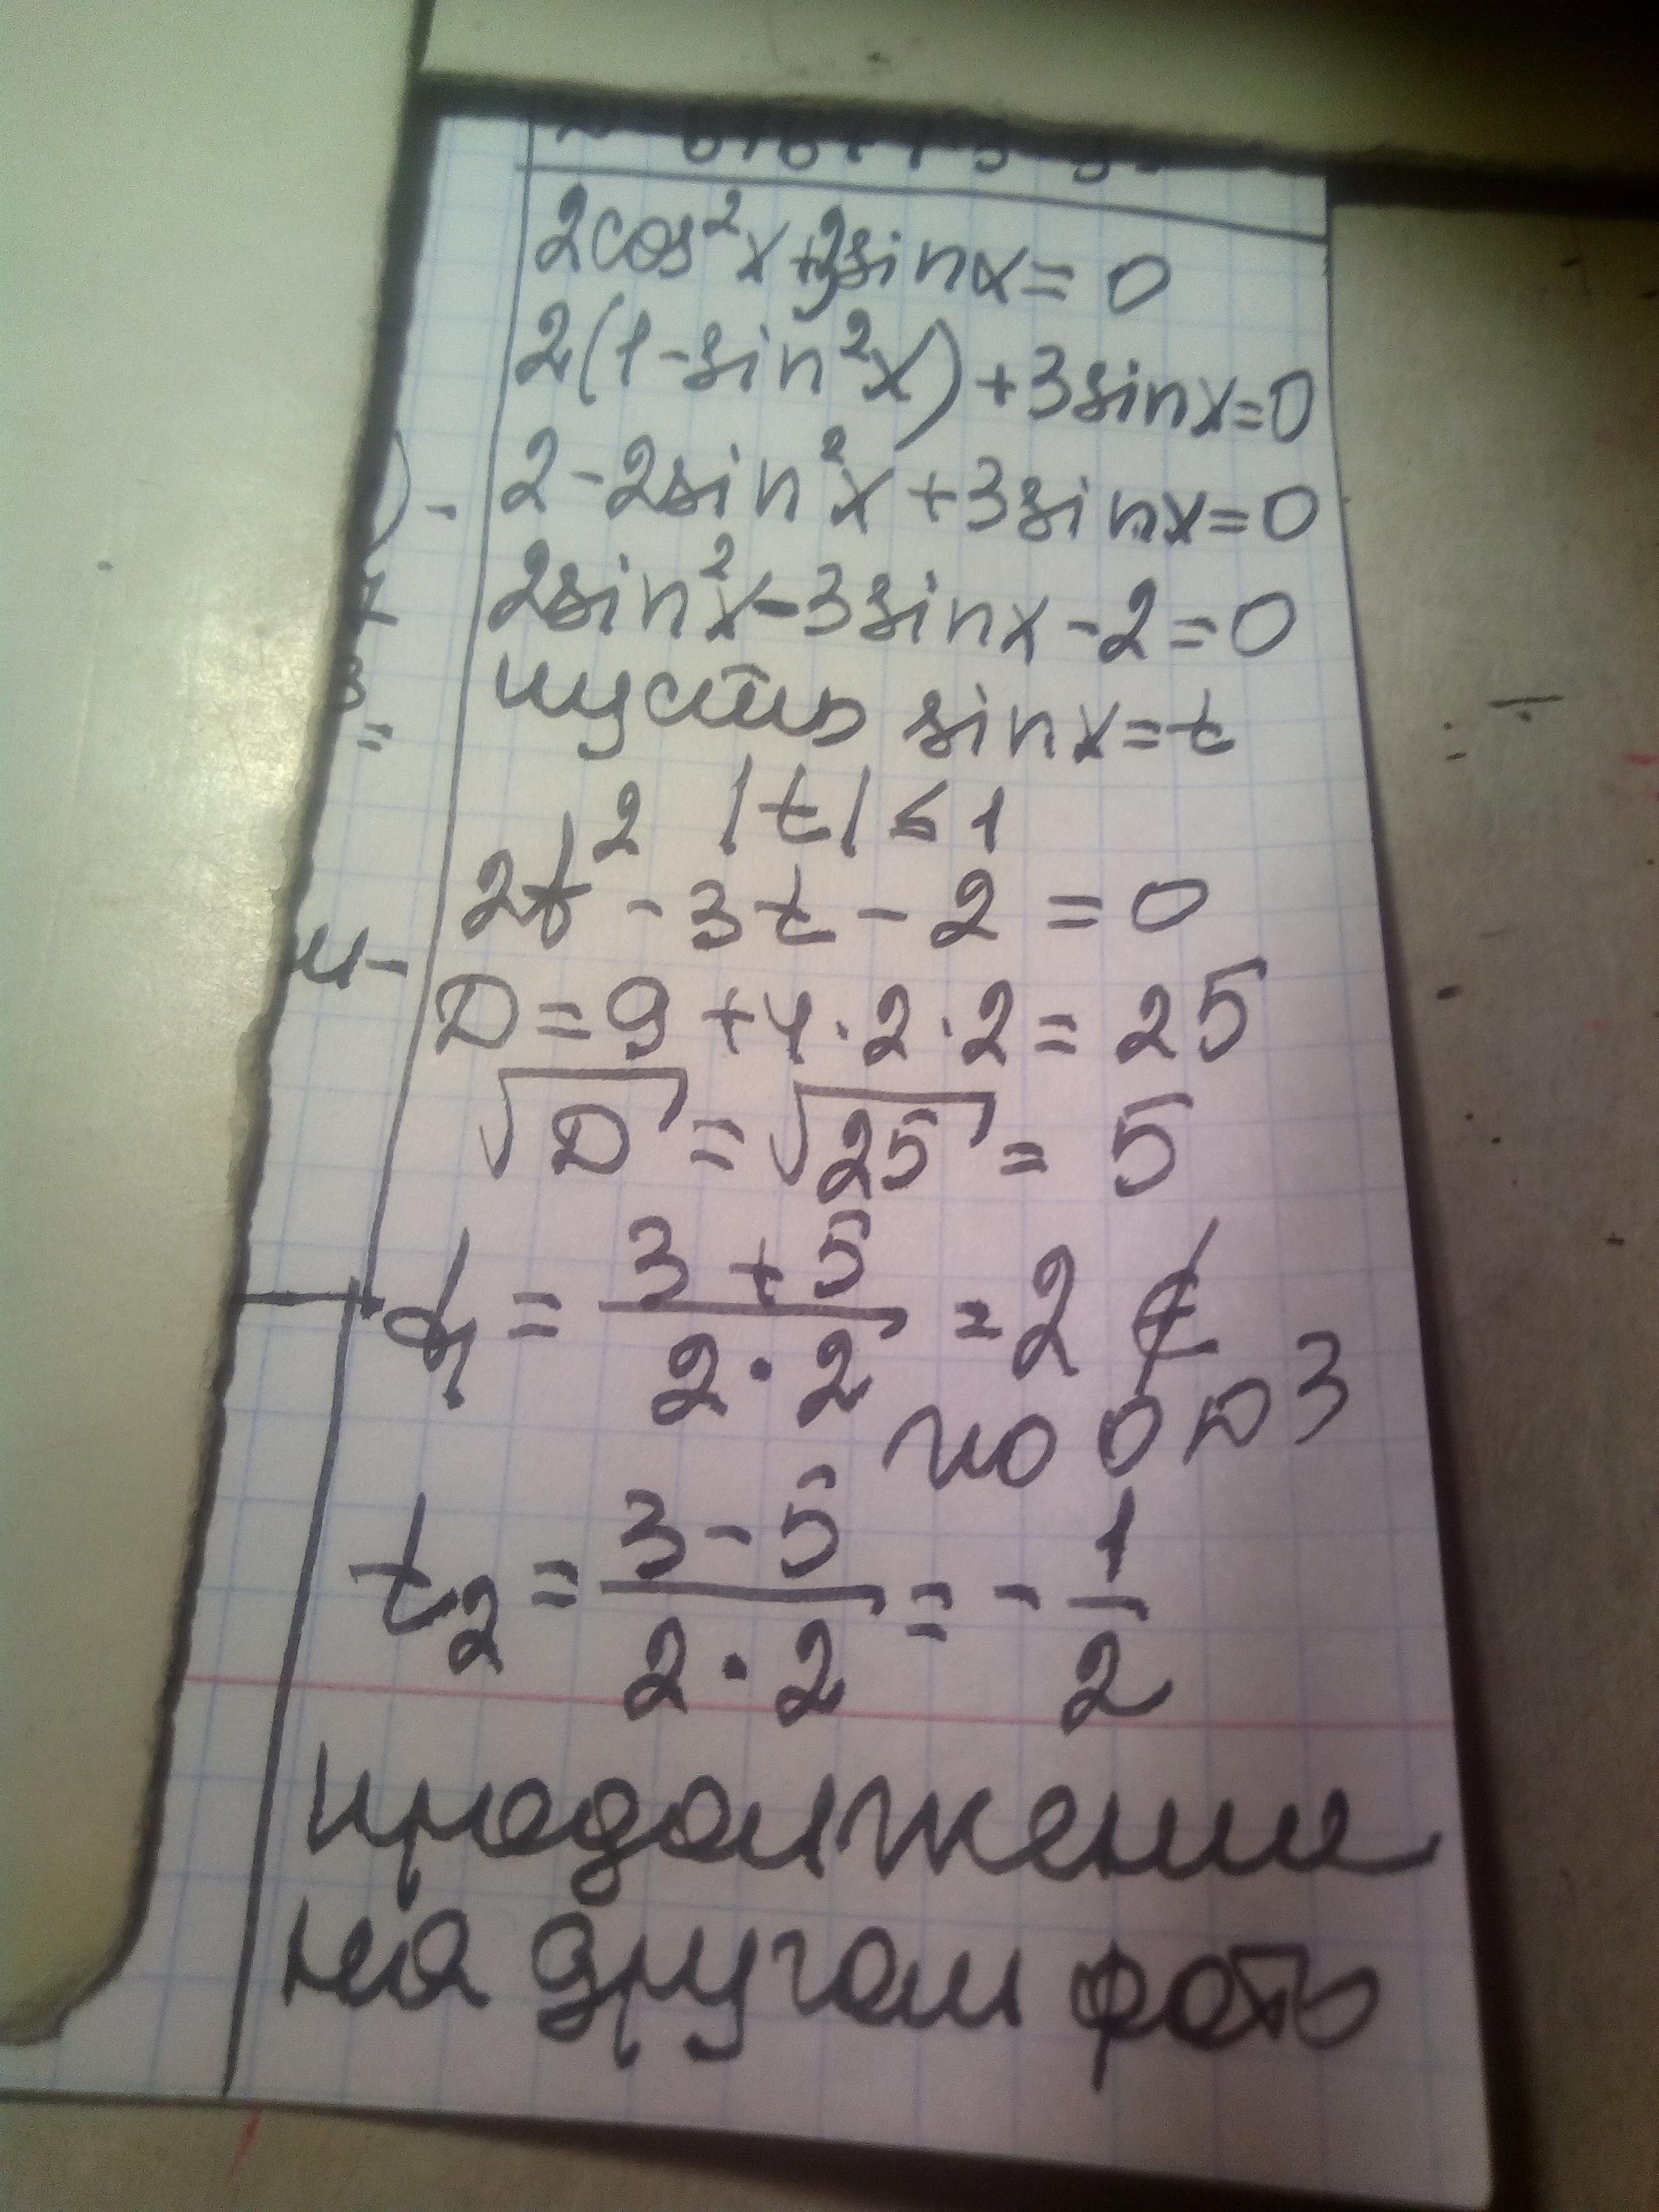 2cos²x+3sinx=0
2(1-sin²x)+3sinx=0
2-2sin²x+3sinx=0
2sin²x-3sinx-2=0
пусть sinx=t
|t|≤1
2t²-3t-2=0
D=9+4·2·2=25
√D=√25=5
t₁=(3+5)/(2·2)=2 ∉
по ОДЗ
t₂=(3-5)/(2·2)=-1/2
продолжение
на другом фоть